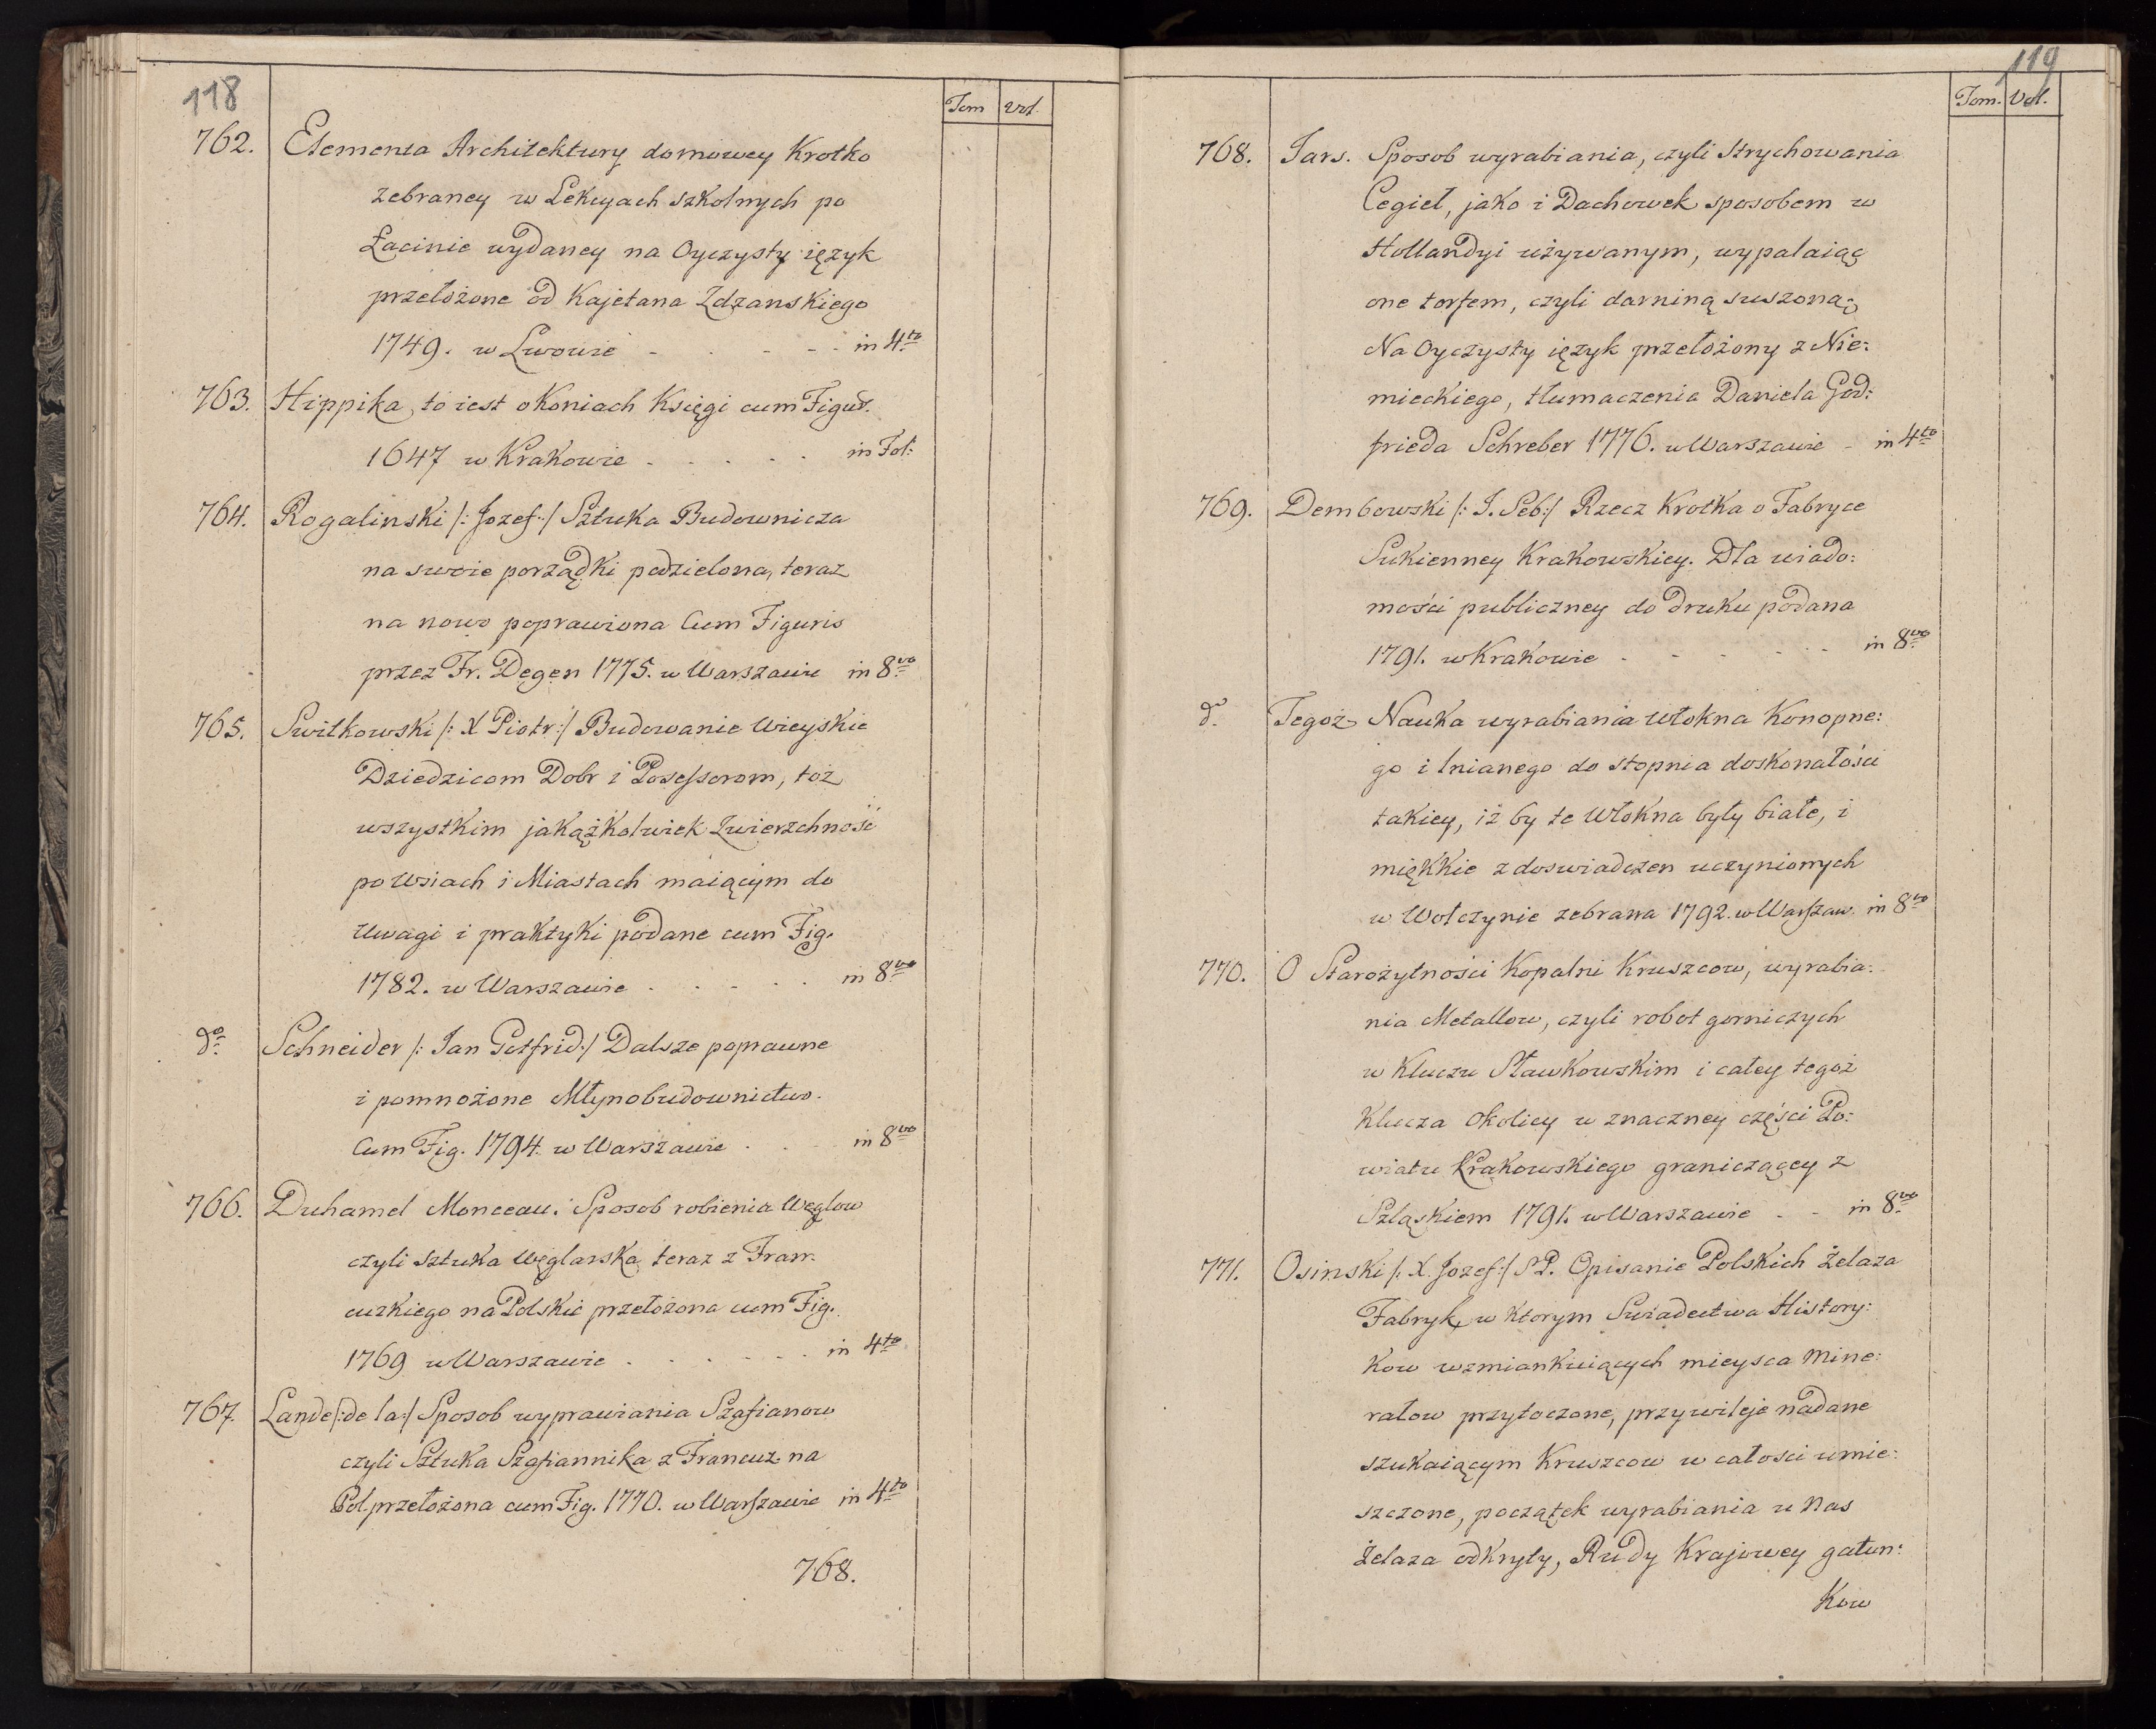 118
Tom Vol.
762. Elementa Architektury domowey Krotko
zebraney w Lekcyach szkolnych po
Łacinie wydaney na Oyczysty ięzyk
przełożone od Kajetana Zdzanskiego
1749. w Lwowie - - - - - in 4to
763. Hippika, to iest o Koniach Księgi cum Figur.
1647 w Krakowie . . . . . in Fol:
764. Rogalinski /: Jozef :/ Sztuka Budownicza
na swoie porządki podzielona, teraz
na nowo poprawiona Cum Figuris
przez Fr. Degen 1775. w Warszawie in 8vo
765. Switkowski /: X Piotr :/ Budowanie Wieyskie
Dziedzicom Dobr i Possessorom, toż
wszystkim jakążkolwiek Zwierzchność
po Wsiach i Miastach maiącym do
Uwagi i praktyki podane cum Fig.
1782. w Warszawie . . . . . in 8vo
do. Schneider /: Jan Gotfrid :/ Dalsze poprawne
i pomnożone Młynobudownictwo.
Cum Fig. 1794. w Warszawie . . in 8vo
766. Duhamel Monceau. Sposob robienia Węglow
czyli sztuka Węglarska teraz z Fran-
cuzkiego na Polskie przełożona cum Fig.
1769 w Warszawie . . . . . . in 4to
767. Lande /: de la :/ Sposob wyprawiania Szafianow
czyli Sztuka Szafiannika z Francuz. na
Pol przełożona cum Fig. 1770. w Warszawie in 4to
768.
119
Tom. Vol.
768. Jars. Sposob wyrabiania, czyli Strychowania
Cegieł, jako i Dachowek sposobem w
Hollandyi używanym, wypalaiąc
one torfem, czyli darniną suszoną;
Na Oyczysty ięzyk przełożony z Nie:
mieckiego, tłumaczenia Daniela God:
frieda Schreber 1776. w Warszawie - in 4to
769. Dembowski /: J. Seb :/ Rzecz Krotka o Fabryce
Sukienney Krakowskiey. Dla wiado:
mości publiczney do druku podana
1791. w Krakowie - - - - - - in 8vo
do. Tegoż Nauka wyrabiania Włokna Konopne:
go i lnianego do stopnia doskonałości
takiey, iż by te Włokna były białe, i
miękkie z doswiadczen uczynionych
w Wołczynie zebrana 1792. w Warszaw. in 8vo
770. O Starożytności Kopalni Kruszcow, wyrabia:
nia Metallow, czyli robot gorniczych
w Kluczu Sławkowskim i całey tegoż
Klucza Okolicy w znaczney części Po:
wiatu Krakowskiego graniczącey z
Szląskiem 1791. w Warszawie - - in 8vo
771. Osinski /: X. Jozef :/ S.P. Opisanie Polskich Żelaza
Fabryk, w ktorym Swiadectwa History:
kow wzmiankuiących mieysca Mine:
rałow przytoczone, przywileje nadane
szukaiącym Kruszcow w całosci umie:
szczone, początek wyrabiania u Nas
Żelaza odkryty, Rudy Krajowey gatun:
kow